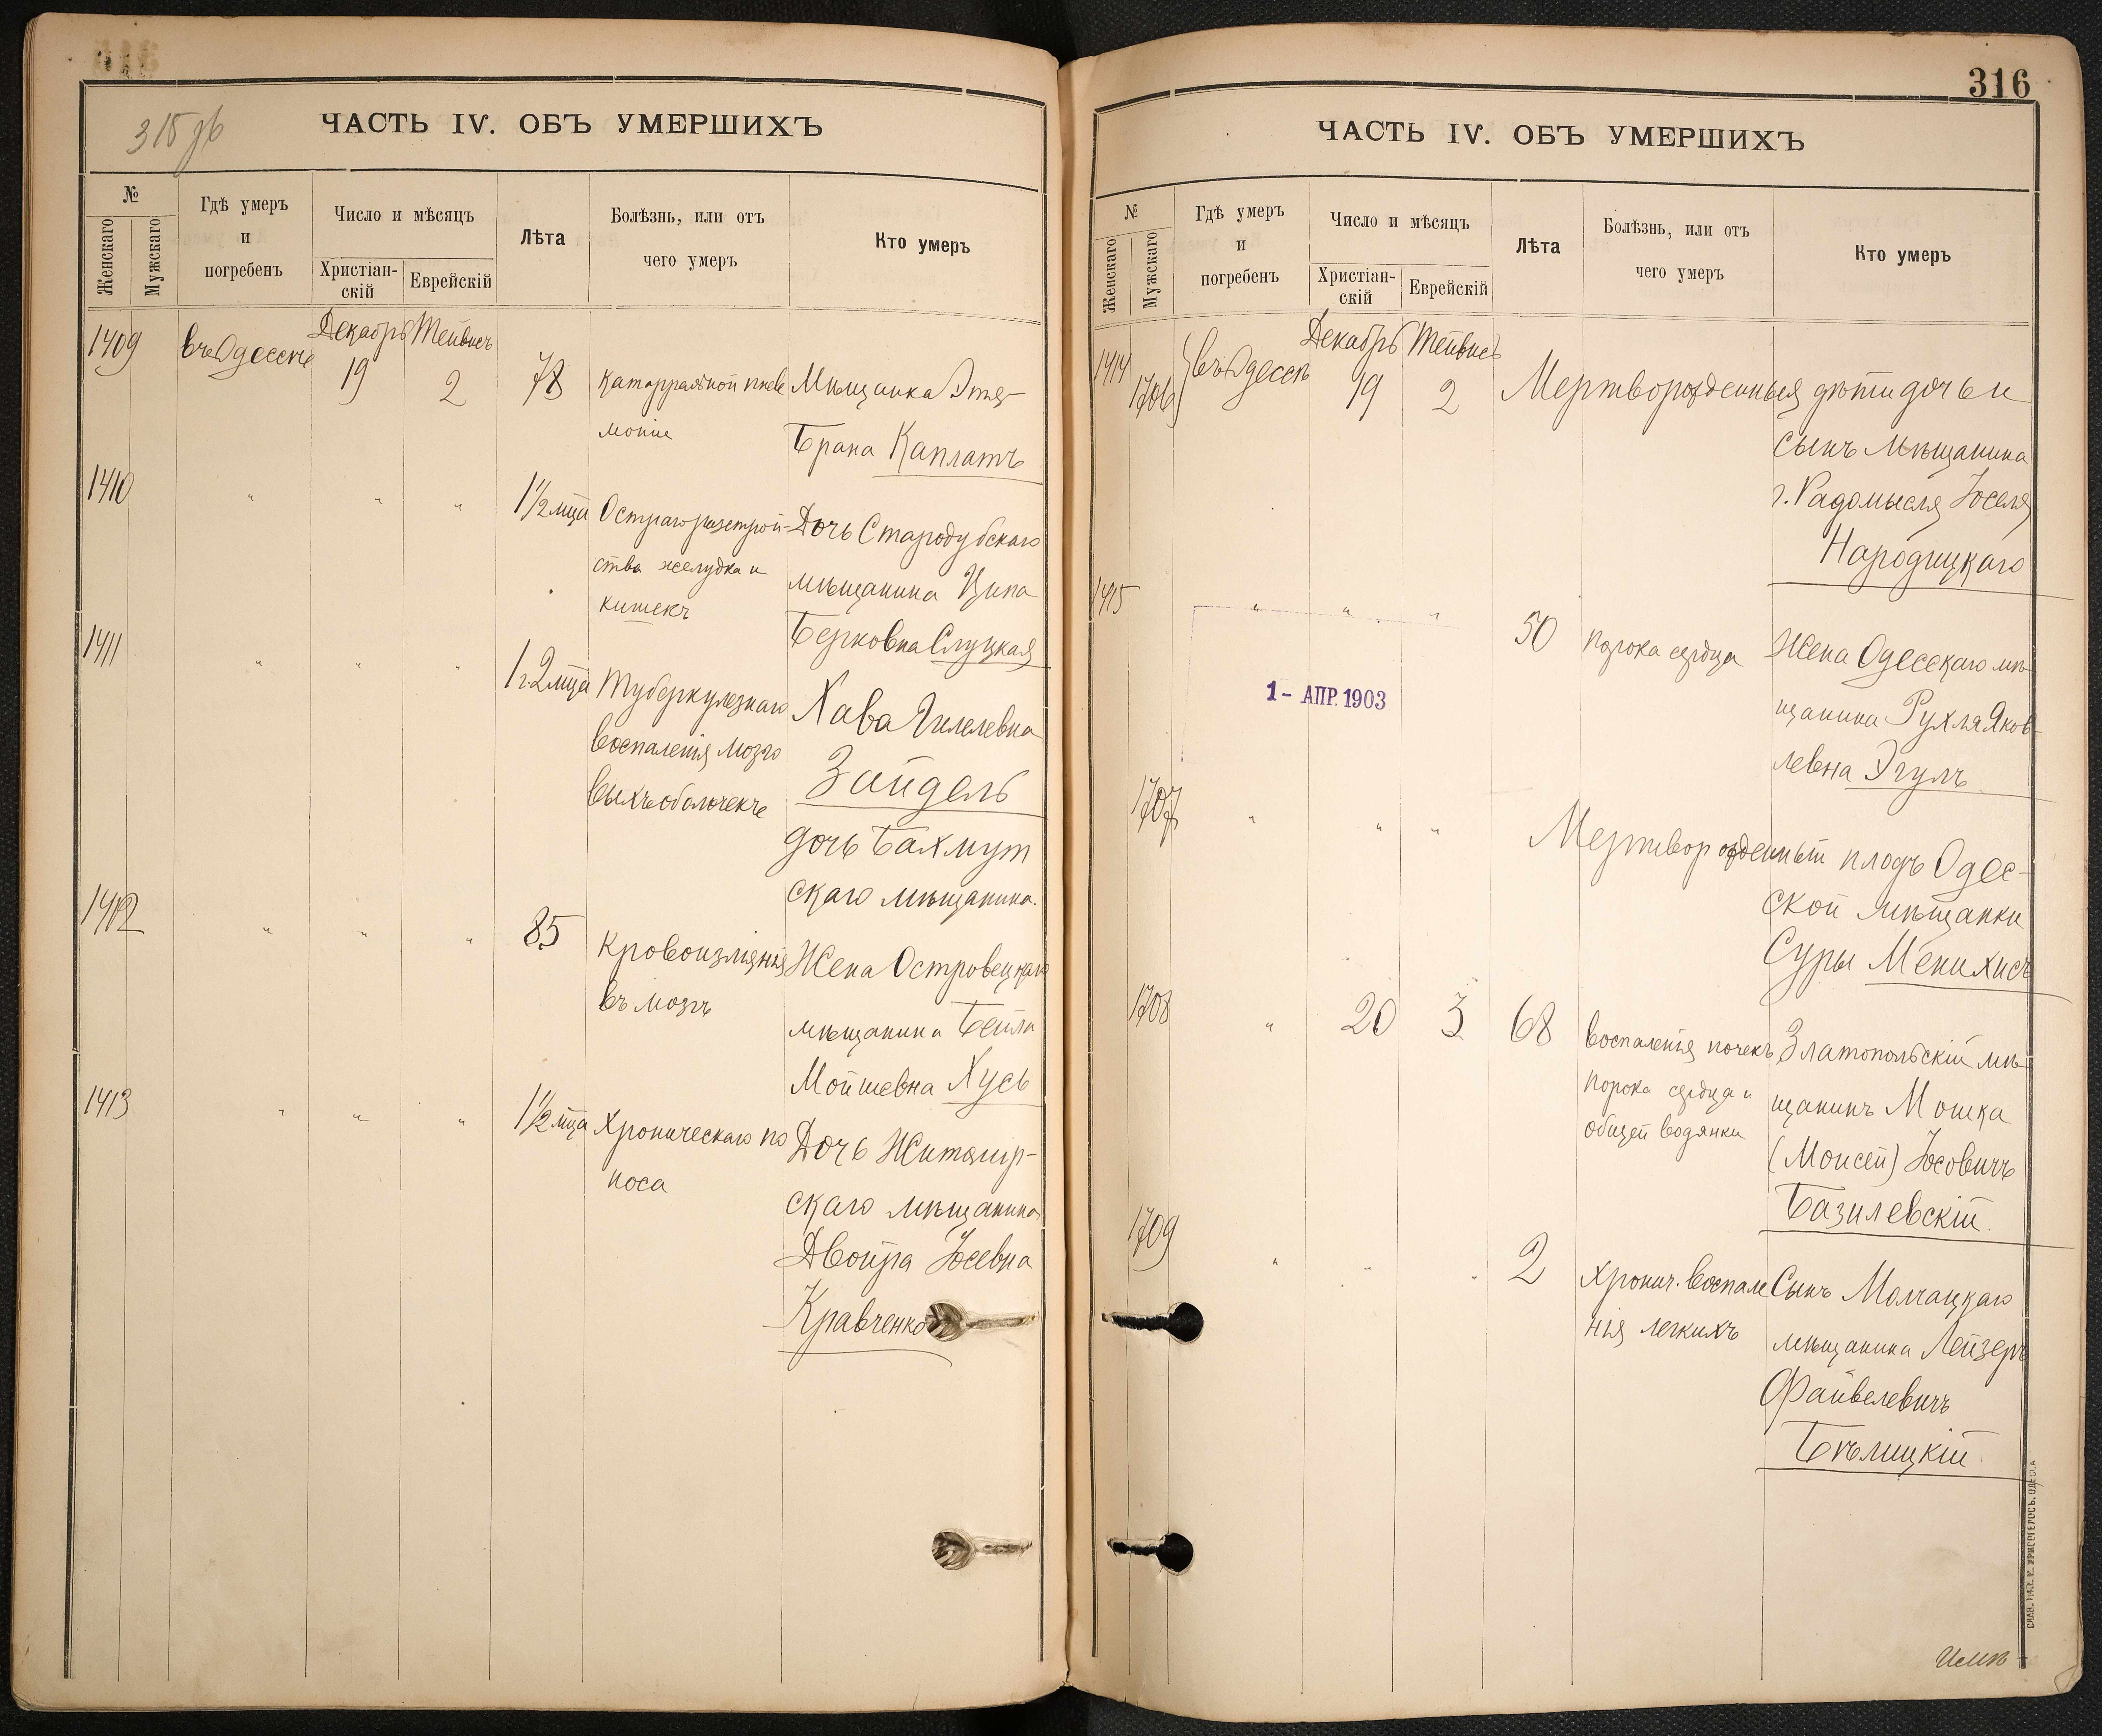 315 об
ЧАСТЬ IV. ОБЪ УМЕРШИХЪ
№
Женскаго
Мужскаго
Гдѣ умеръ
и
погребенъ
Число и мѣсяцъ
Христіан-
скій
Еврейскій
Лѣта
Болѣзнь, или отъ
чего умеръ
Кто умеръ
Декабрь Тейвисъ
1409 въ Одессѣ 19 2 78 катарральной пнев Мѣщанка Этя-
моніи
Брана Каплатъ
1410 " " " 1½ мца Остраго разстрой- Дочь Стародубскаго
ства желудка и мѣщанина Ципа
кишекъ
Берковна Слуцкая
1411 " " " 1 г. 2 мца Туберкулезнаго Хава Гилелевна
воспаленія мозго Зайдель
выхъ оболочекъ
дочь Бахмут
скаго мѣщанина.
1412 " " " 85 Кровоизліянія Жена Островецкаго
въ мозгъ мѣщанина Бейла
Мойшевна Хусь
1413 " " " 1½ мца Хроническаго по Дочь Житомир-
носа скаго мѣщанина
Двойра Іосевна
Кравченко
316
ЧАСТЬ IV. ОБЪ УМЕРШИХЪ
№
Женскаго
Мужскаго
Гдѣ умеръ
и
погребенъ
Число и мѣсяцъ
Христіан-
скій
Еврейскій
Лѣта
Болѣзнь, или отъ
чего умеръ
Кто умеръ
Декабрь Тейвисъ
1414 1706 въ Одессѣ 19 2 Мертворожденныя дѣти дочь и
сынъ мѣщанина
г. Радомысля Іоселя
Народицкаго
1415 " " " 50 порока сердца Жена Одесскаго мѣ-
щанина Рухля Яков-
левна Эгулъ
1- АПР. 1903
1707 " " " Мертворожденный плодъ Одес-
ской мѣщанки
Суры Менихисъ
1708 " 20 3 68 воспаленія почекъ Златопольскій мѣ-
порока сердца и щанинъ Мошка
общей водянки (Моисей) Іосовичъ
Базилевскій.
1709 " " " 2 Хронич. воспале Сынъ Молчацкаго
нія легкихъ мѣщанина Лейзеръ
Файвелевичъ
Бѣлицкій